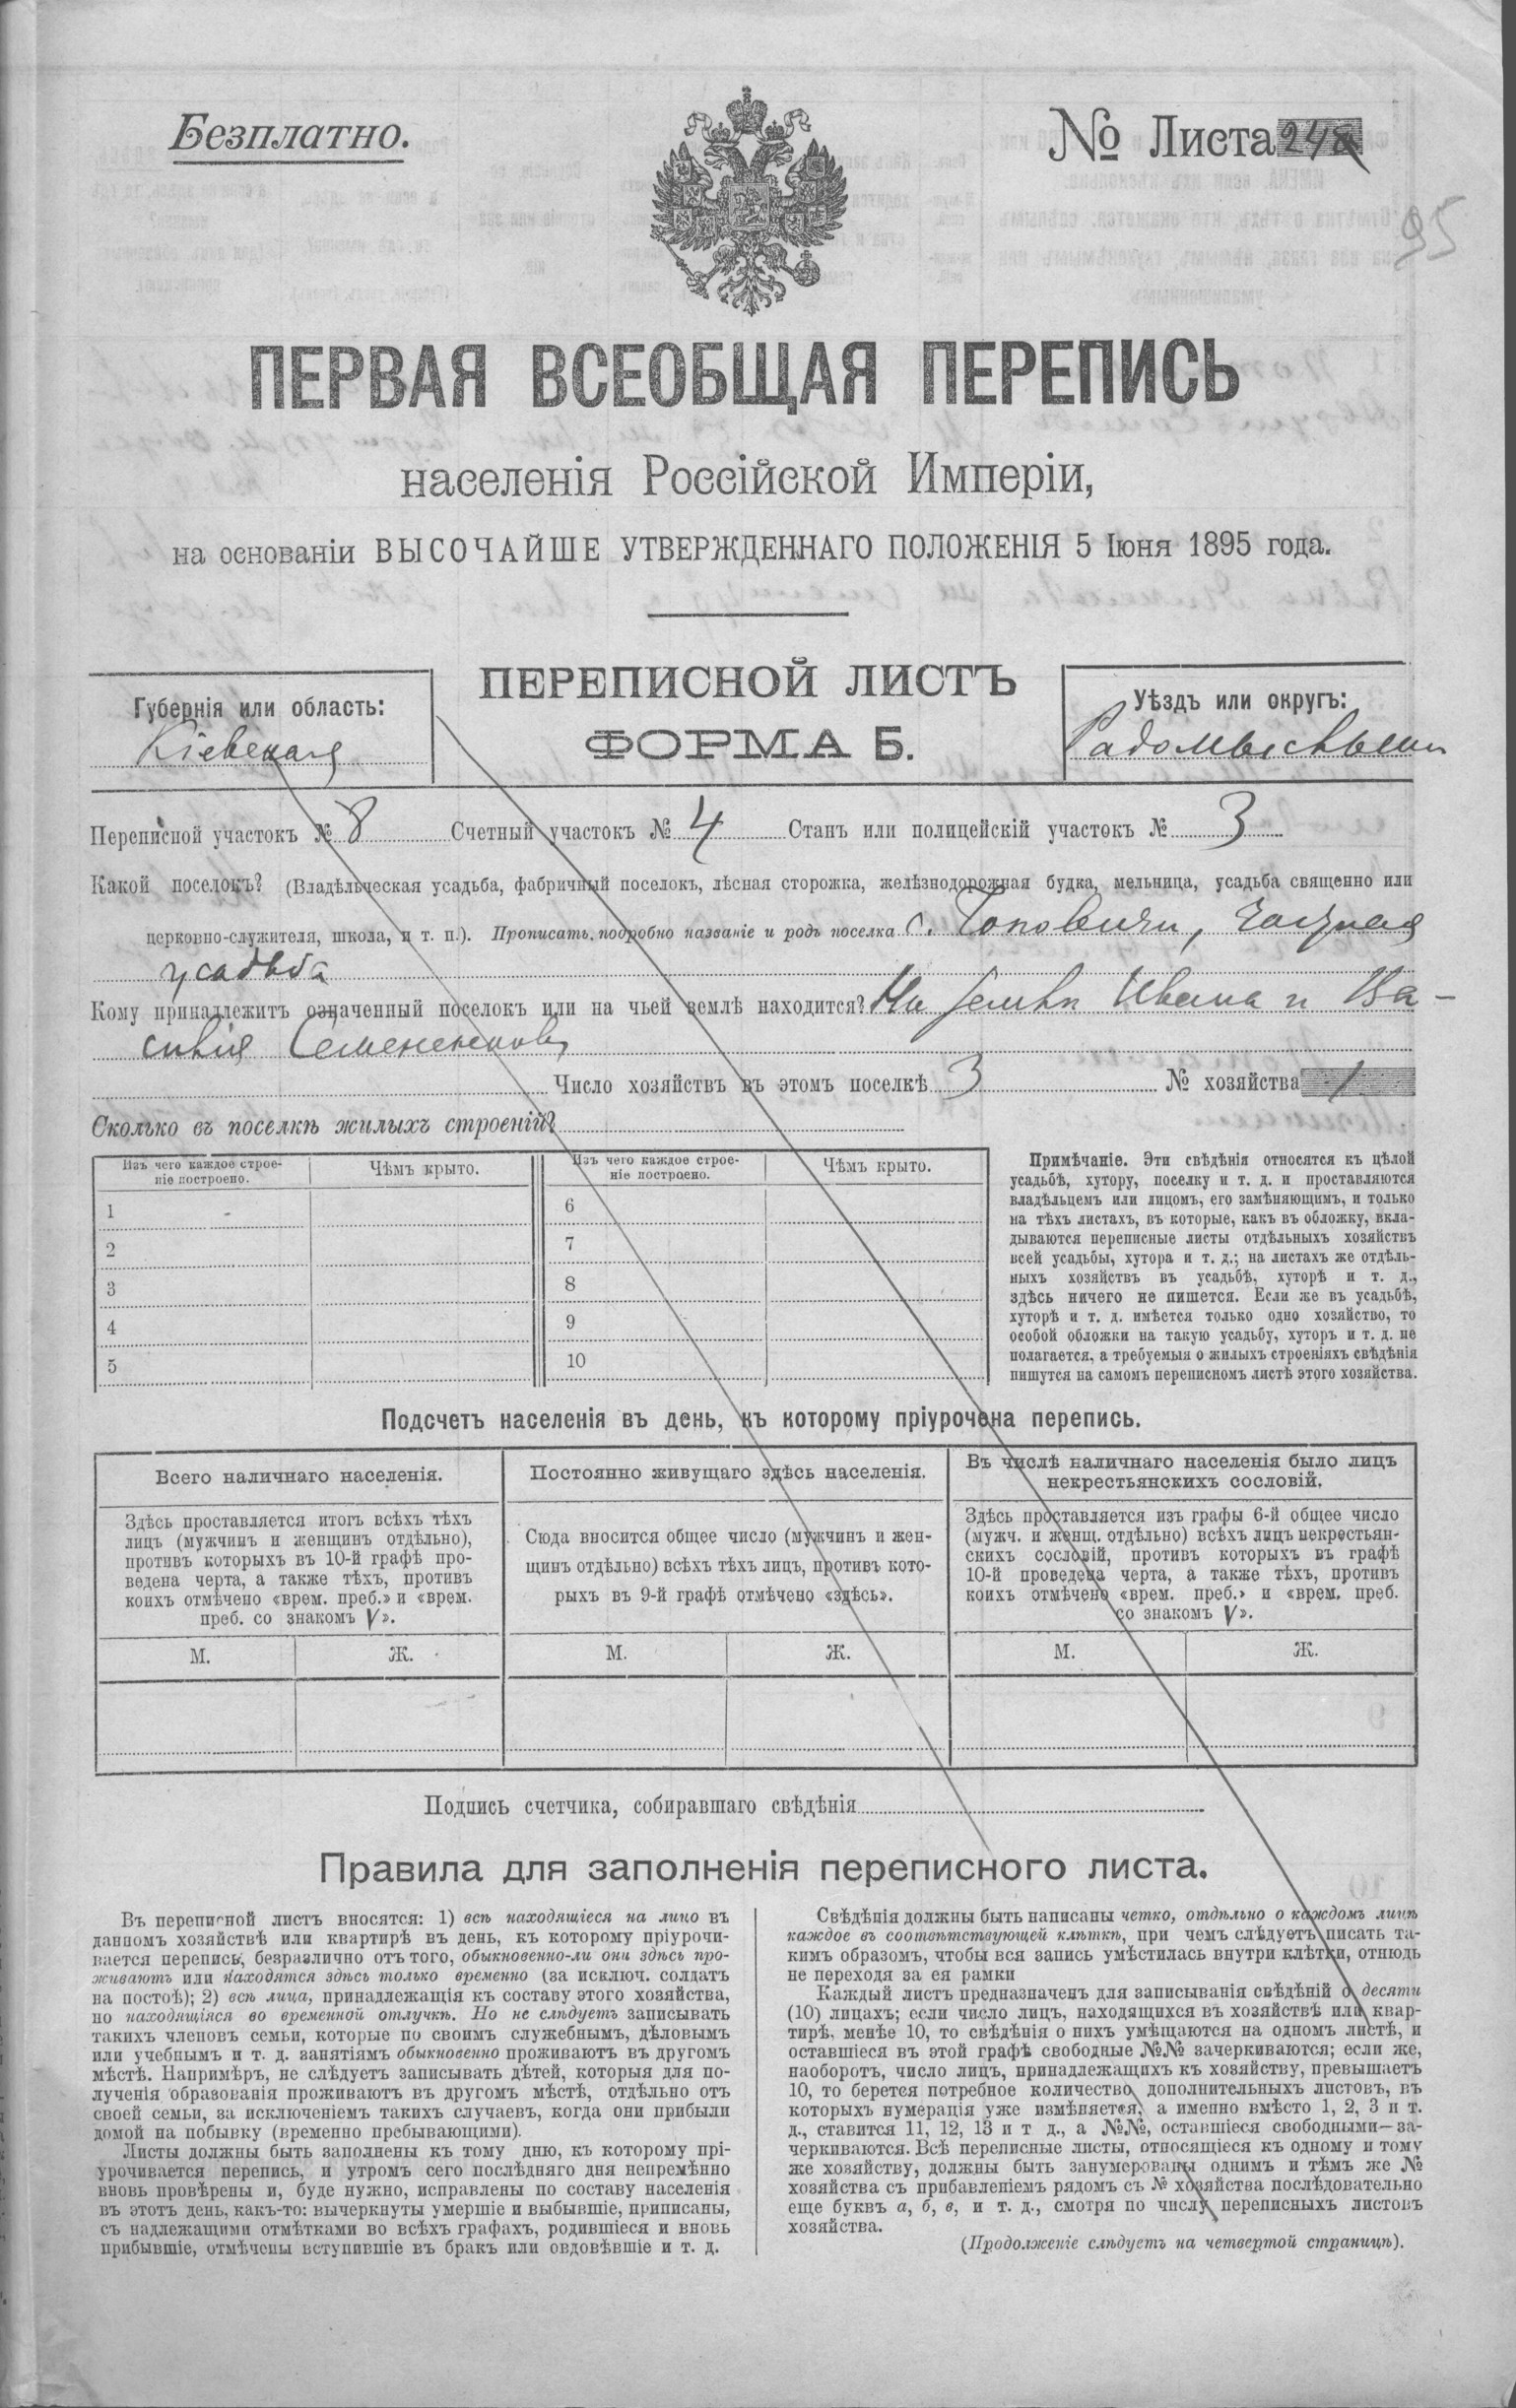 Безплатно.
№ Листа 24
95
ПЕРВАЯ ВСЕОБЩАЯ ПЕРЕПИСЬ
населенія Россійской Имперіи,
на основаніи ВЫСОЧАЙШЕ УТВЕРЖДЕННАГО ПОЛОЖЕНІЯ 5 Іюня 1895 года.
Губернія или область:
Кіевская
ПЕРЕПИСНОЙ ЛИСТЪ
ФОРМА Б.
Уѣздъ или округъ:
Радомысльскій
Переписной участокъ № 8 Счетный участокъ № 4 Станъ или полицейскій участокъ № 3
Какой поселокъ? (Владѣльческая усадьба, фабричный поселокъ, лѣсная сторожка, желѣзнодорожная будка, мельница, усадьба священно или
церковно-служителя, школа, и т. п.). Прописать подробно названіе и родъ поселка с. Поповичи,
усадьба
Кому принадлежитъ означенный поселокъ или на чьей землѣ находится? На землѣ Ивана и Ва-
силія
Число хозяйствъ въ этомъ поселкѣ 3 № хозяйства 1
Сколько въ поселкѣ жилыхъ строеній?
Изъ чего каждое строе-
ніе построено.
Чѣмъ крыто.
Изъ чего каждое строе-
ніе построено.
Чѣмъ крыто.
1
2
3
4
5
6
7
8
9
10
Примѣчаніе. Эти свѣдѣнія относятся къ цѣлой
усадьбѣ, хутору, поселку и т. д. и проставляются
владѣльцемъ или лицомъ, его замѣняющимъ, и только
на тѣхъ листахъ, въ которые, какъ въ обложку, вкла-
дываются переписные листы отдѣльныхъ хозяйствъ
всей усадьбы, хутора и т. д.; на листахъ же отдѣль-
ныхъ хозяйствъ въ усадьбѣ, хуторѣ и т. д.,
здѣсь ничего не пишется. Если же въ усадьбѣ,
хуторѣ и т. д. имѣется только одно хозяйство, то
особой обложки на такую усадьбу, хуторъ и т. д. не
полагается, а требуемыя о жилыхъ строеніяхъ свѣдѣнія
пишутся на самомъ переписномъ листѣ этого хозяйства.
Подсчетъ населенія въ день, къ которому пріурочена перепись.
Всего наличнаго населенія.
Здѣсь проставляется итогъ всѣхъ тѣхъ
лицъ (мужчинъ и женщинъ отдѣльно),
противъ которыхъ въ 10-й графѣ про-
ведена черта, а также тѣхъ, противъ
коихъ отмѣчено «врем. преб.» и «врем.
преб. со знакомъ V».
М. Ж.
Постоянно живущаго здѣсь населенія.
Сюда вносится общее число (мужчинъ и жен-
щинъ отдѣльно) всѣхъ тѣхъ лицъ, противъ кото-
рыхъ въ 9-й графѣ отмѣчено «здѣсь».
М. Ж.
Въ числѣ наличнаго населенія было лицъ
некрестьянскихъ сословій.
Здѣсь проставляется изъ графы 6-й общее число
(мужч. и женщ. отдѣльно) всѣхъ лицъ некрестьян-
скихъ сословій, противъ которыхъ въ графѣ
10-й проведена черта, а также тѣхъ, противъ
коихъ отмѣчено «врем. преб.» и «врем. преб.
со знакомъ V».
М. Ж.
Подпись счетчика, собиравшаго свѣдѣнія
Правила для заполненія переписного листа.
Въ переписной листъ вносятся: 1) всѣ находящіеся на лицо въ
данномъ хозяйствѣ или квартирѣ въ день, къ которому пріурочи-
вается перепись, безразлично отъ того, обыкновенно-ли они здѣсь про-
живаютъ или находятся здѣсь только временно (за исключ. солдатъ
на постоѣ); 2) всѣ лица, принадлежащія къ составу этого хозяйства,
но находящіяся во временной отлучкѣ. Но не слѣдуетъ записывать
такихъ членовъ семьи, которые по своимъ служебнымъ, дѣловымъ
или учебнымъ и т. д. занятіямъ обыкновенно проживаютъ въ другомъ
мѣстѣ. Напримѣръ, не слѣдуетъ записывать дѣтей, которыя для по-
лученія образованія проживаютъ въ другомъ мѣстѣ, отдѣльно отъ
своей семьи, за исключеніемъ такихъ случаевъ, когда они прибыли
домой на побывку (временно пребывающими).
Листы должны быть заполнены къ тому дню, къ которому прі-
урочивается перепись, и утромъ сего послѣдняго дня непремѣнно
вновь провѣрены и, буде нужно, исправлены по составу населенія
въ этотъ день, какъ-то: вычеркнуты умершіе и выбывшіе, приписаны,
съ надлежащими отмѣтками во всѣхъ графахъ, родившіеся и вновь
прибывшіе, отмѣчены вступившіе въ бракъ или овдовѣвшіе и т. д.
Свѣдѣнія должны быть написаны четко, отдѣльно о каждомъ лицѣ
каждое въ соотвѣтствующей клѣткѣ, при чемъ слѣдуетъ писать та-
кимъ образомъ, чтобы вся запись умѣстилась внутри клѣтки, отнюдь
не переходя за ея рамки
Каждый листъ предназначенъ для записыванія свѣдѣній о десяти
(10) лицахъ; если число лицъ, находящихся въ хозяйствѣ или квар-
тирѣ, менѣе 10, то свѣдѣнія о нихъ умѣщаются на одномъ листѣ, и
оставшіеся въ этой графѣ свободные №№ зачеркиваются; если же,
наоборотъ, число лицъ, принадлежащихъ къ хозяйству, превышаетъ
10, то берется потребное количество дополнительныхъ листовъ, въ
которыхъ нумерація уже измѣняется, а именно вмѣсто 1, 2, 3 и т.
д., ставится 11, 12, 13 и т д., а №№, оставшіеся свободными—за-
черкиваются. Всѣ переписные листы, относящіеся къ одному и тому
же хозяйству, должны быть занумерованы однимъ и тѣмъ же №
хозяйства съ прибавленіемъ рядомъ съ № хозяйства послѣдовательно
еще буквъ а, б, в, и т. д., смотря по числу переписныхъ листовъ
хозяйства.
(Продолженіе слѣдуетъ на четвертой страницѣ).